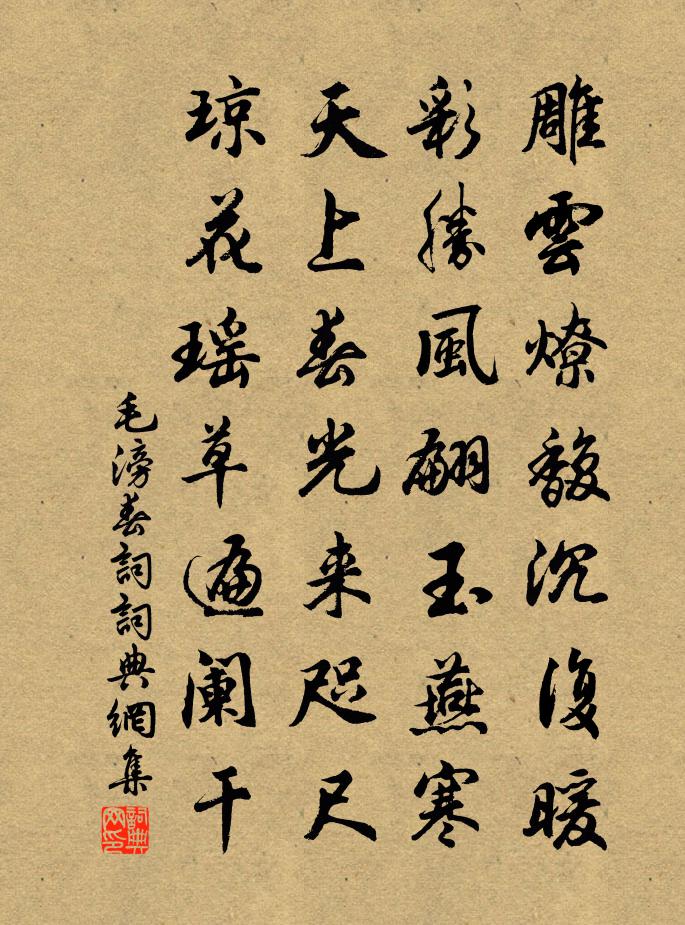 雕雲燎馥沉復暖
彩勝風翩玉燕寒
天上春光来咫尺
琼花瑶草遍阑干
毛滂春詞詞典網集
詞典网印